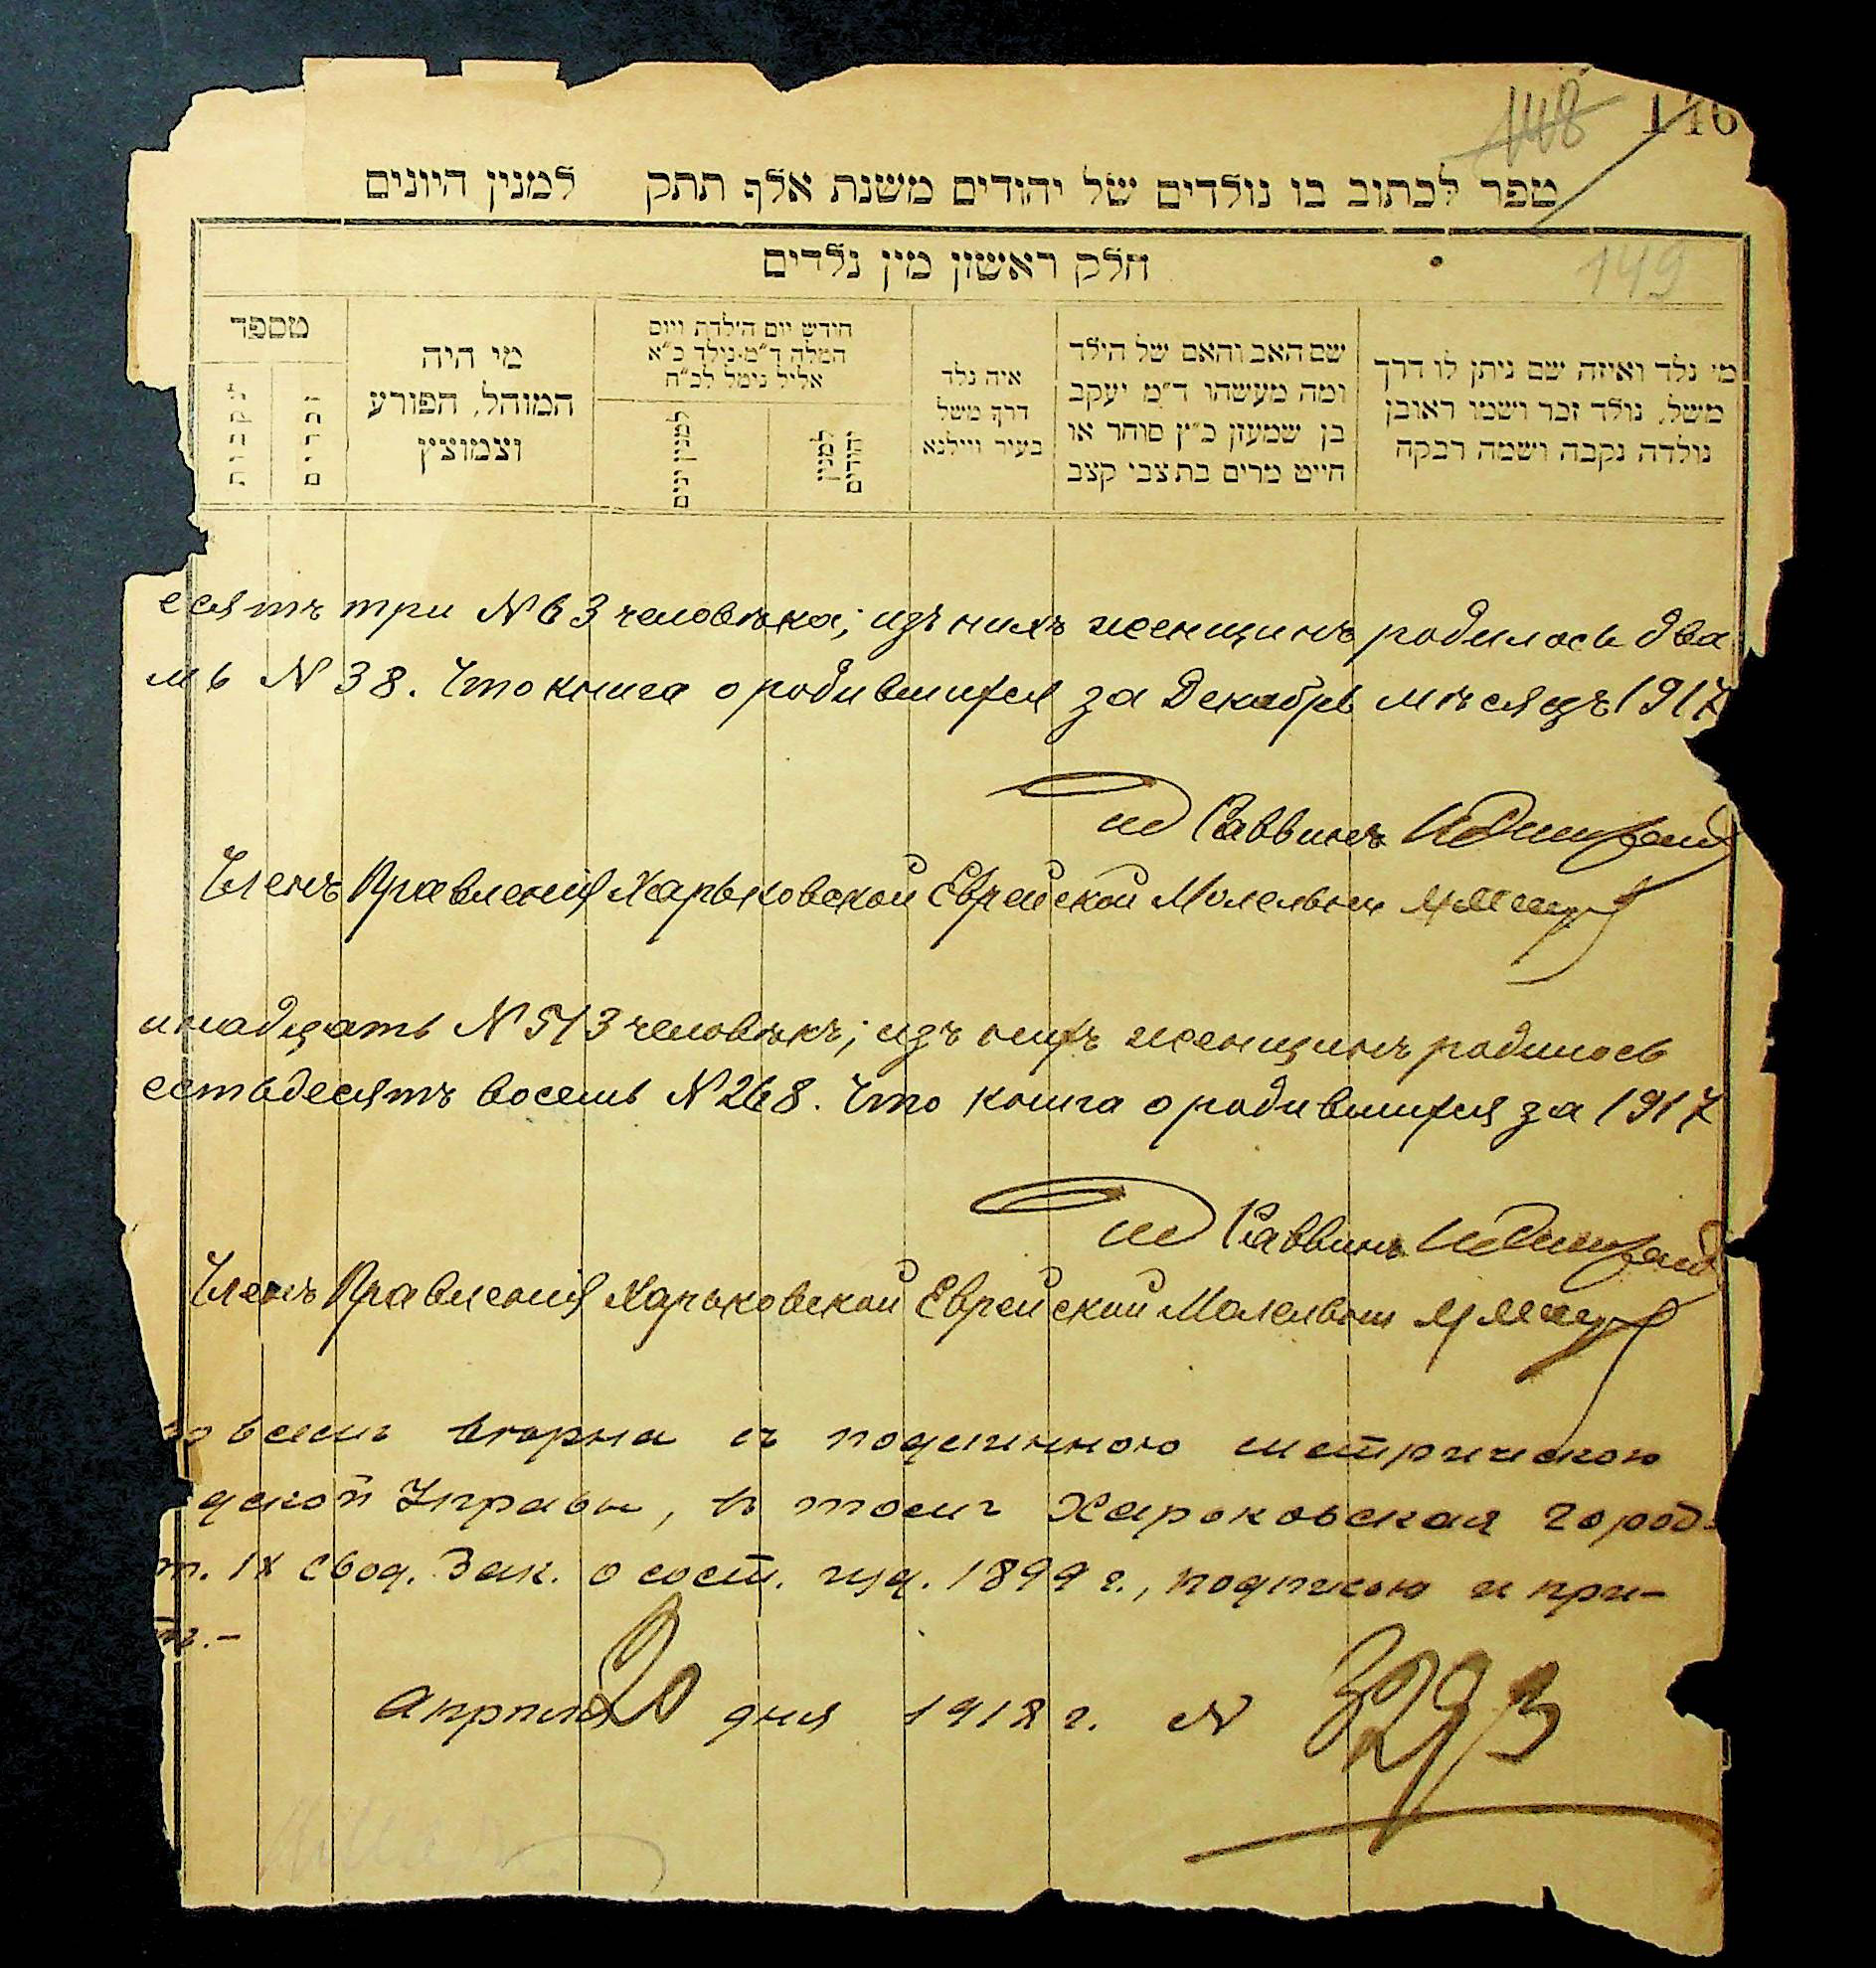 148
146
ספר לכתוב בו נולדים של יהודים משנת אלף תתק למנין היונים
149
חלק ראשון מין נלדים
מי נלד ואיזה שם ניתן לו דרך
משל, נולד זכר ושמו ראובן
נולדה נקבה ושמה רבקה
שם האב והאם של הילד
ומה מעשהו ד״מ יעקב
בן שמעון כ״ץ סוחר או
חייט מרים בת צבי קצב
איה נלד
דרך משל
בעיר ווילנא
חודש יום הילדת ויום
המלה ד״מ נילד כ״א
אליל נימל לכ״ח
למנין יהודים
למנין יונים
מי היה
המוהל, הפורע
וצמוצץ
מספר
זכרים
נקבות
есять три N 63 человѣка; изъ нихъ женщинъ родилось два
мь N 38. Что книга о родившихся за Декабрь мѣсяцъ 1917
ид Раввинъ
Членъ Правленія Харьковской Еврейской Молельни
инадцать N 513 человѣкъ; изъ нихъ женщинъ родилось
естьдесятъ восемь N 268. Что книга о родившихся за 1917
ид Раввинъ
Членъ Правленія Харьковской Еврейской Молельни
всемъ вѣрна съ подлинною метрическою
дской Управы, въ томъ Харьковская Город-
т. IX Свод. Зак. о сост. изд. 1899 г., подписью и при-
Апрѣля 20 дня 1918 г. N 3293